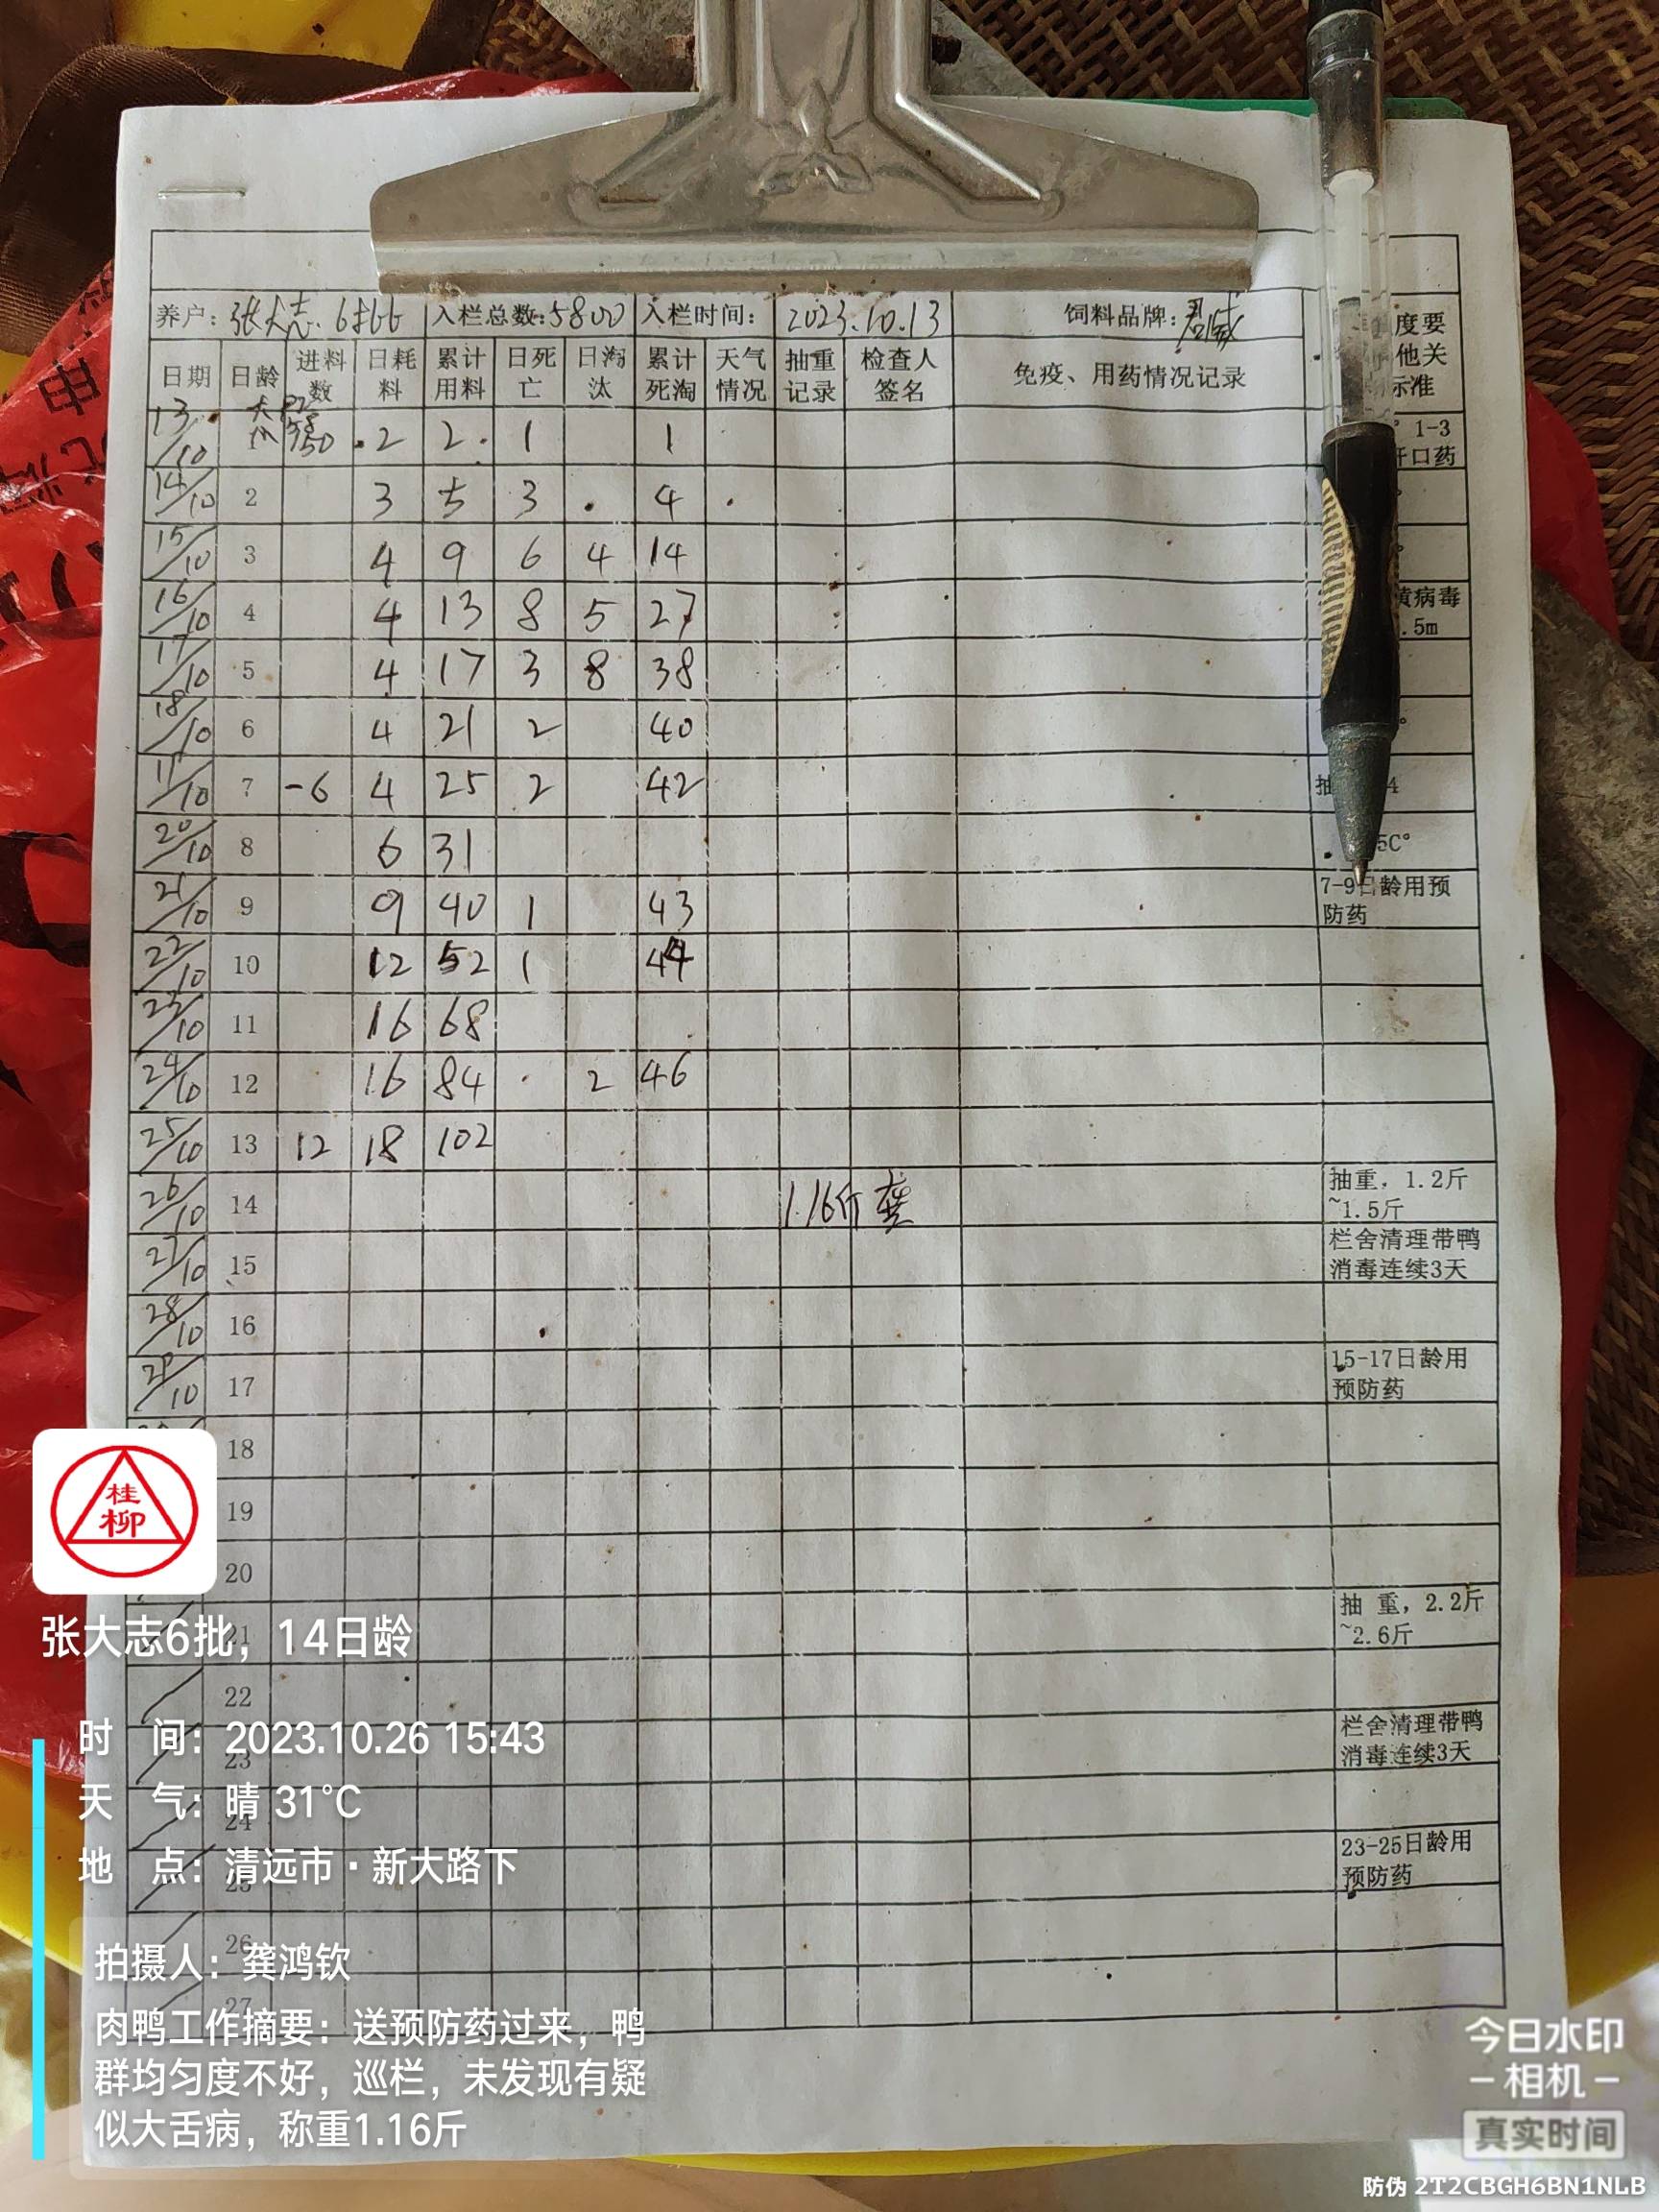 养户：张大志.6批 入栏总数：5800 入栏时间： 2023.10.13 饲料品牌：
度要
他关
标准
日期 日龄 进料数 日耗料 累计用料 日死亡 日淘汰 累计死淘 天气情况 抽重记录 检查人签名 免疫、用药情况记录
13/10 1 2 2 1 1 1-3
开口药
14/10 2 3 5 3 4
15/10 3 4 9 6 4 14
16/10 4 4 13 8 5 27 黄病毒
.5m
17/10 5 4 17 3 8 38
18/10 6 4 21 2 40
7 -6 4 25 2 42 抽 4
20/10 8 6 31 5C°
21/10 9 9 40 1 43 7-9日龄用预防药
22/10 10 12 52 1 44
23/10 11 16 68
24/10 12 16 84 2 46
25/10 13 12 18 102
26/10 14 1.16斤 龚 抽重，1.2斤~1.5斤
27/10 15 栏舍清理带鸭消毒连续3天
28/10 16
29/10 17 15-17日龄用预防药
18
19
20
21 抽 重，2.2斤~2.6斤
22
23 栏舍清理带鸭消毒连续3天
24
25 23-25日龄用预防药
26
27
桂
柳
张大志6批，14日龄
时 间：2023.10.26 15:43
天 气：晴 31°C
地 点：清远市·新大路下
拍摄人：龚鸿钦
肉鸭工作摘要：送预防药过来，鸭
群均匀度不好，巡栏，未发现有疑
似大舌病，称重1.16斤
今日水印
相机
真实时间
防伪 2T2CBGH6BN1NLB